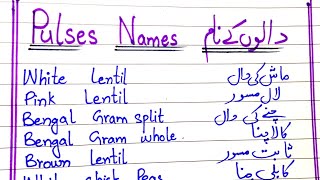 Pulses Names دالوں کے نام
White Lentil ماش کی دال
Pink Lentil لال مسور
Bengal Gram split چنے کی دال
Bengal Gram whole. کالا چنا
Brown Lentil ثابت مسور
White chick Peas کابلی چنا